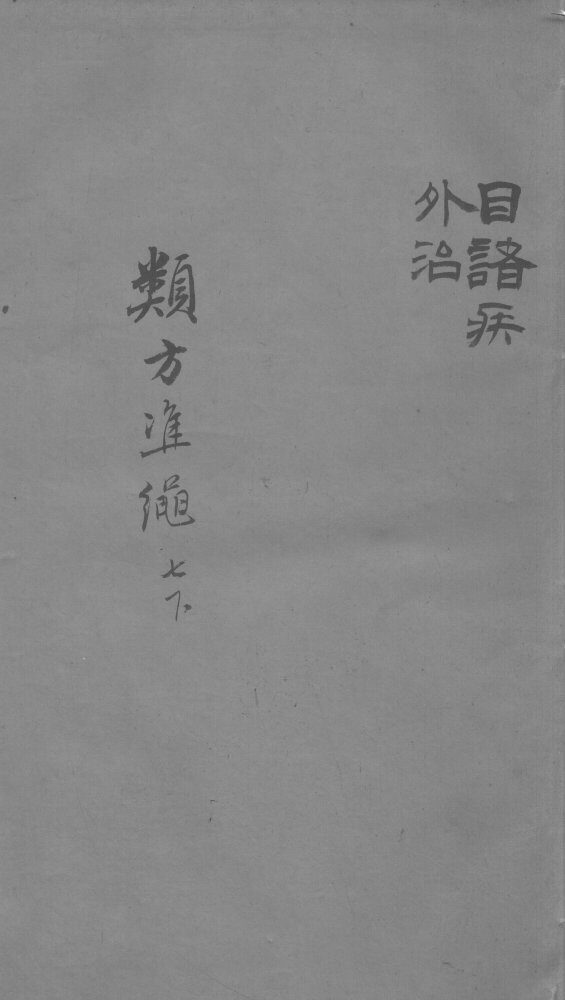 目諸疾
外治
類方準繩七下